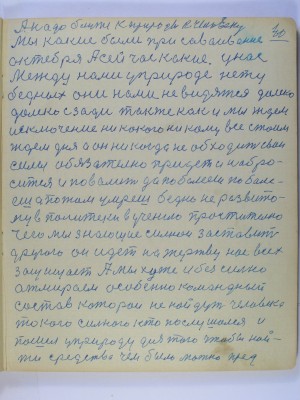 А надо ближе к природе к человеку 40
Мы какие были при
октября А сейчас какие, у нас
Между нами у природе нету
бедных они нами не видятся далеко
далеко сзади так же как и мы ждем
исключение никакого никому все стоим
ждем дня а он никогда не обходит свои
силы обязательно придет и набро-
сится и повалит да поболеем побале-
еш а потом умреш бедно не развито-
му в политеки в учению простительно
чего мы знающие силной заставит
другого он идет на жертву нас всех
защищает А мы хуже и без силно
атмираем особенно командный
состав которои не найдут человека
такого силного кто послушался и
пошел у природу для того чтобы най-
ти средства чем было можно пред